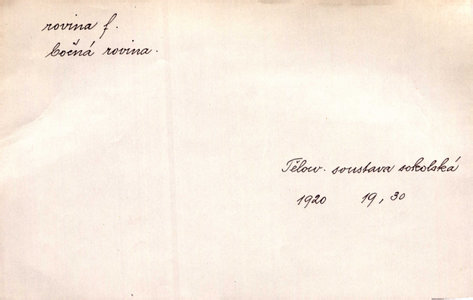 rovina f.
bočná rovina.
Tělow. soustava sokolská
1920 19, 30